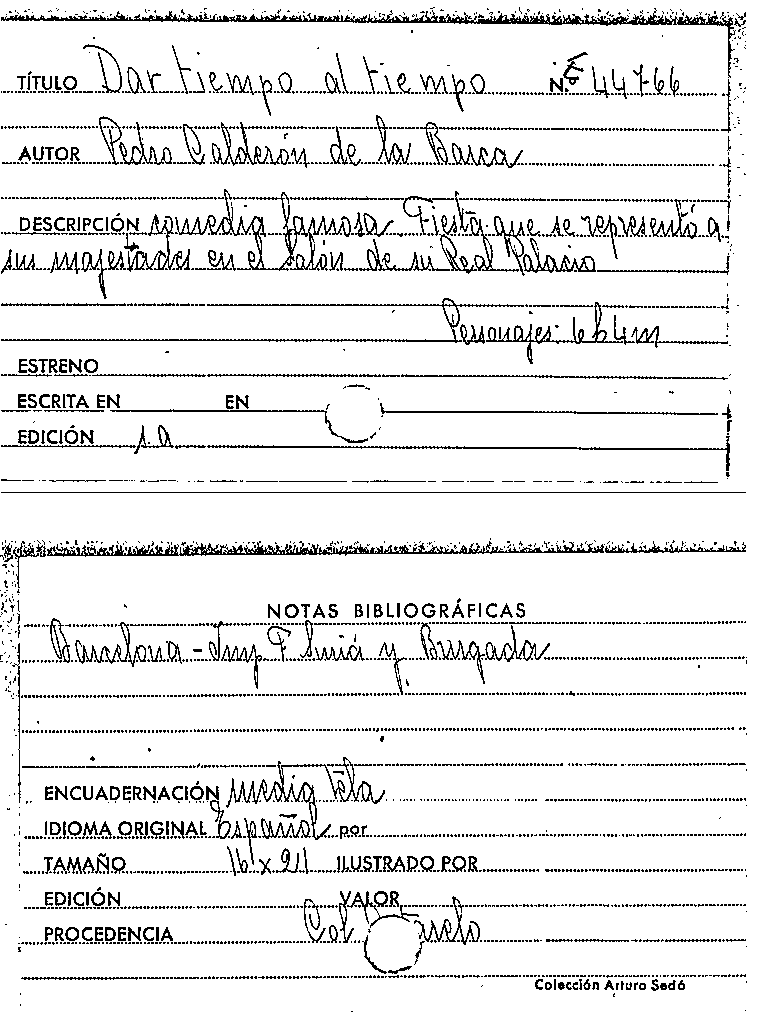 TÍTULO Dar tiempo al tiempo N.º 44766
AUTOR Pedro Calderón de la Barca
DESCRIPCIÓN comedia famosa. Fiesta que se representó a
sus majestades en el Salón de su Real Palacio
Personajes: 6h 4m
ESTRENO
ESCRITA EN EN
EDICIÓN s.a
NOTAS BIBLIOGRÁFICAS
Barcelona - Imp F Suriá y Burgada
ENCUADERNACIÓN media tela
IDIOMA ORIGINAL Español por
TAMAÑO 16 x 21 ILUSTRADO POR
EDICIÓN VALOR
PROCEDENCIA Col
Colección Arturo Sedó